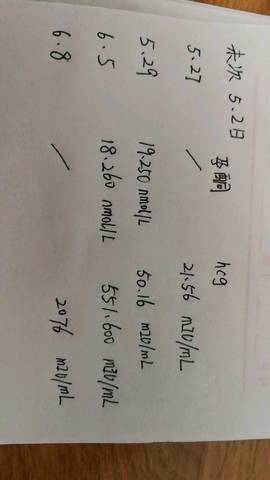 末次 5.2日
孕酮 hcg
5.27 / 21.56 mIU/mL
5.29 19.250 nmol/L 50.16 mIU/mL
6.5 18.260 nmol/L 551.600 mIU/mL
6.8 / 2076 mIU/mL